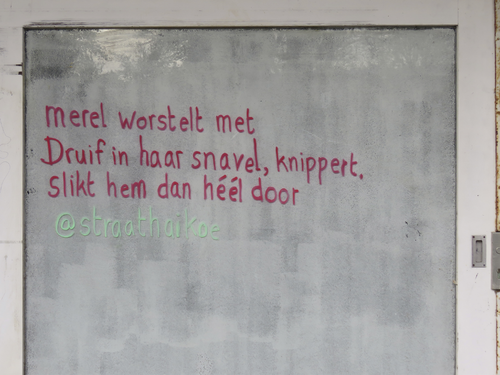 merel worstelt met
Druif in haar snavel, knippert.
slikt hem dan héél door
@straathaikoe